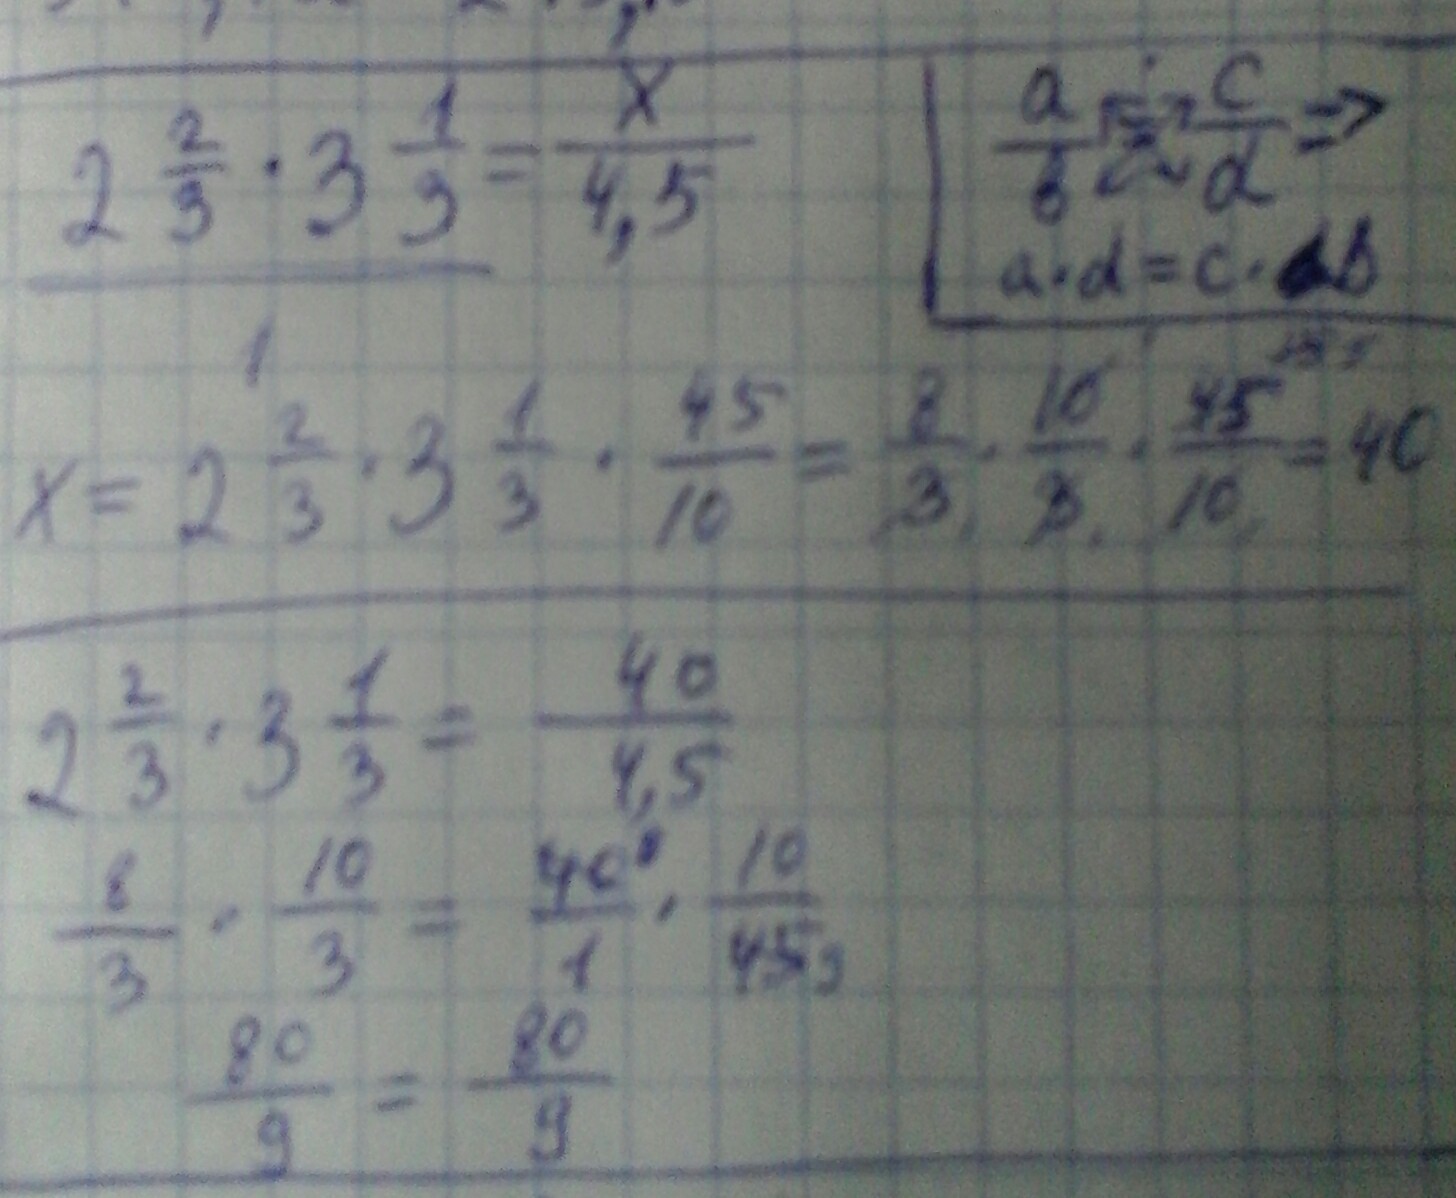 2 2/3 · 3 1/3 = x/4,5
a/b = c/d ⇒
a·d = c·b
x = 2 2/3 · 3 1/3 · 45/10 = 8/3 · 10/3 · 45/10 = 40
2 2/3 · 3 1/3 = 40/4,5
8/3 · 10/3 = 40/1 · 10/45
80/9 = 80/9